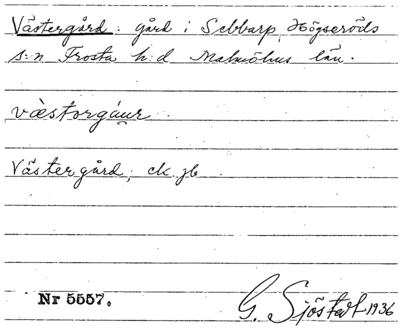 Västergård: gård i Sebbarp, Högseröds
s:n Frosta h:d Malmöhus län.
væ̀storgáur
Västergård; ck. jb
Nr 5557.
G. Sjöstedt 1936